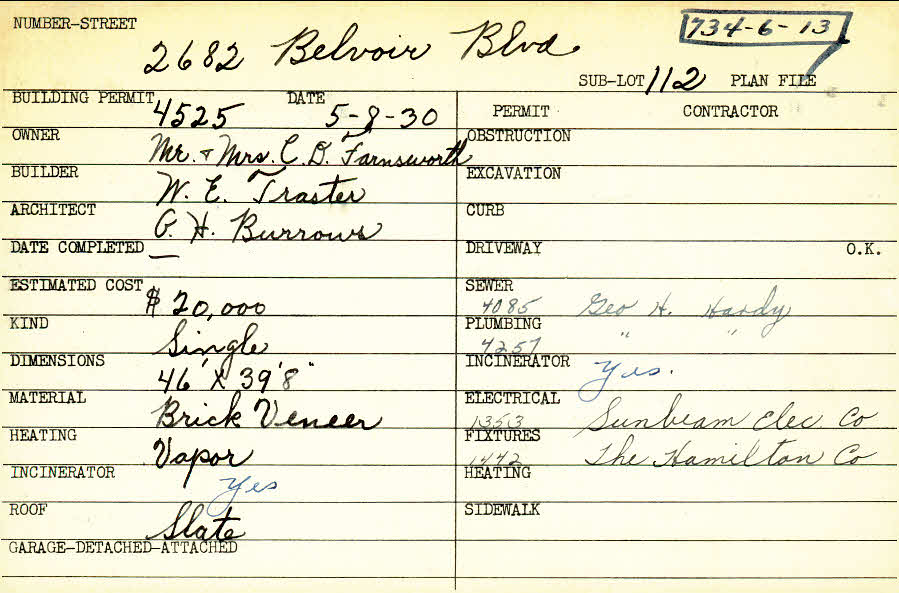 NUMBER-STREET
734-6-13
2682 Belvoir Blvd.
SUB-LOT 112 PLAN FILE
BUILDING PERMIT 4525 DATE 5-8-30
PERMIT CONTRACTOR
OWNER Mr. & Mrs. C. D. Farnsworth
OBSTRUCTION
BUILDER W. E. Traster
EXCAVATION
ARCHITECT G. H. Burrows
CURB
DATE COMPLETED —
DRIVEWAY O.K.
ESTIMATED COST $ 20,000
SEWER 4085 Geo H. Hardy
KIND Single
PLUMBING 4257 " "
DIMENSIONS 46' X 39'8"
INCINERATOR Yes.
MATERIAL Brick Veneer
ELECTRICAL 1353 Sunbeam Elec Co
HEATING Vapor
FIXTURES 1442 The Hamilton Co
INCINERATOR Yes
HEATING
ROOF Slate
SIDEWALK
GARAGE-DETACHED-ATTACHED